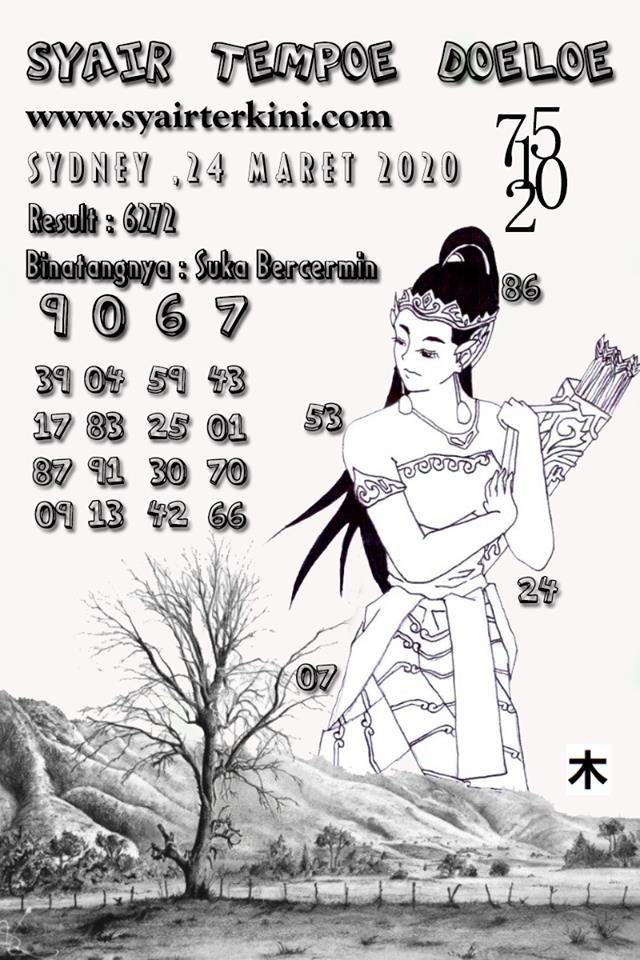 SYAIR TEMPOE DOELOE
www.syairterkini.com
SYDNEY ,24 MARET 2020
Result : 6272
Binatangnya : Suka Bercermin
9 0 6 7
75
10
2
86
39 04 59 43
17 83 25 01
87 91 30 70
09 13 42 66
53
24
07
木